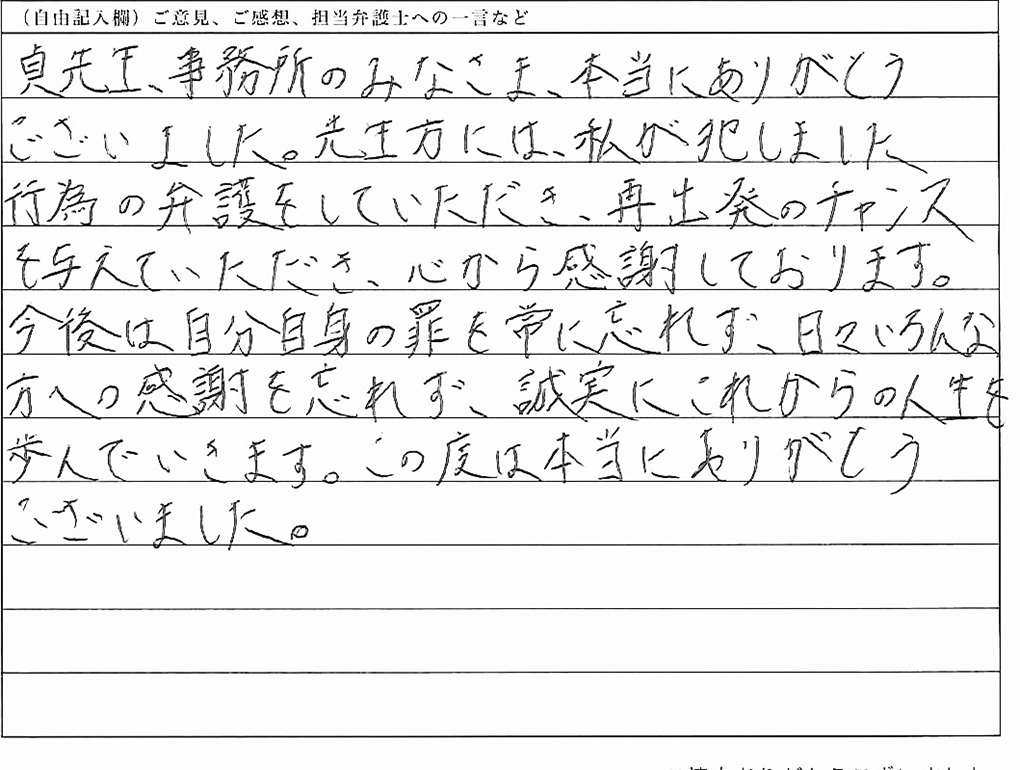 （自由記入欄）ご意見、ご感想、担当弁護士への一言など
貞先生、事務所のみなさま、本当にありがとう
ございました。先生方には、私が犯しました
行為の弁護をしていただき、再出発のチャンス
を与えていただき、心から感謝しております。
今後は自分自身の罪を常に忘れず、日々いろんな
方への感謝を忘れず、誠実にこれからの人生を
歩んでいきます。この度は本当にありがとう
ございました。